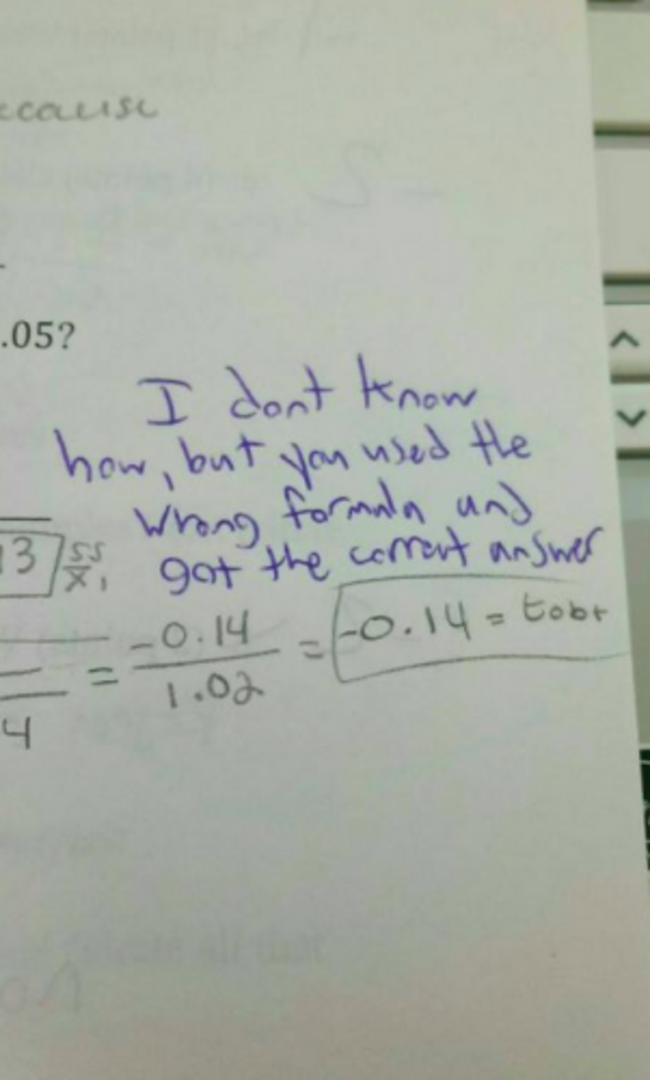 ecause
.05?
I dont know
how, but you used the
wrong formula and
got the correct answer
13 SS
X1
-0.14
= = -0.14 = tobt
1.02
4